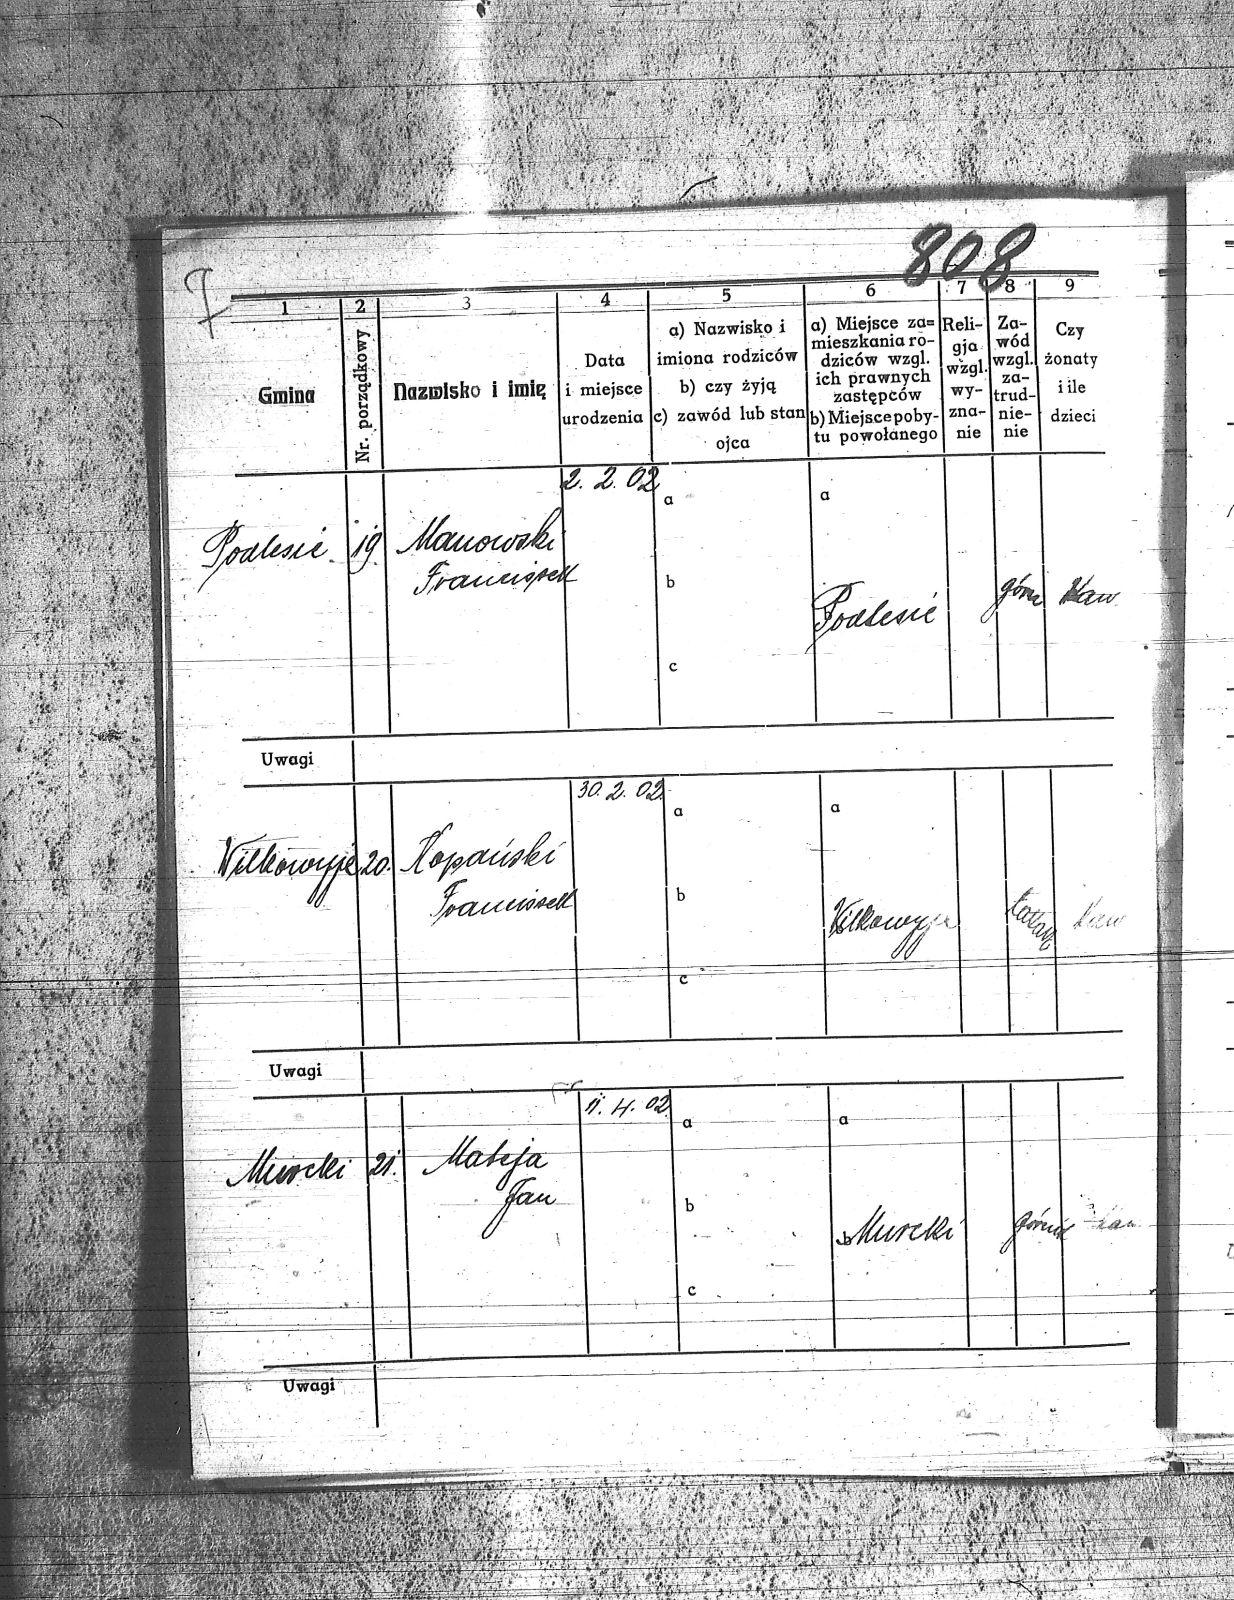 7
808
1
2
3
4
5
6
7
8
9
Gmina
Nr. porządkowy
Nazwisko i imię
Data
i miejsce
urodzenia
a) Nazwisko i
imiona rodziców
b) czy żyją
c) zawód lub stan
ojca
a) Miejsce za=
mieszkania ro-
dziców wzgl.
ich prawnych
zastępców
b) Miejsce poby-
tu powołanego
Reli-
gja
wzgl.
wy-
zna-
nie
Za-
wód
wzgl.
za-
trud-
nie-
nie
Czy
żonaty
i ile
dzieci
2. 2. 02
a
a
Podlesie
19
Manowski
Franciszek
b
Podlesie
górn
Kaw
c
Uwagi
30. 2. 02
a
a
Wilkowyje
20.
Kopański
Franciszek
b
Wilkowyje
Kaw
c
Uwagi
11. 4. 02
a
a
Murcki
21.
Mateja
Jan
b
b
Murcki
górnik
Kaw
c
Uwagi